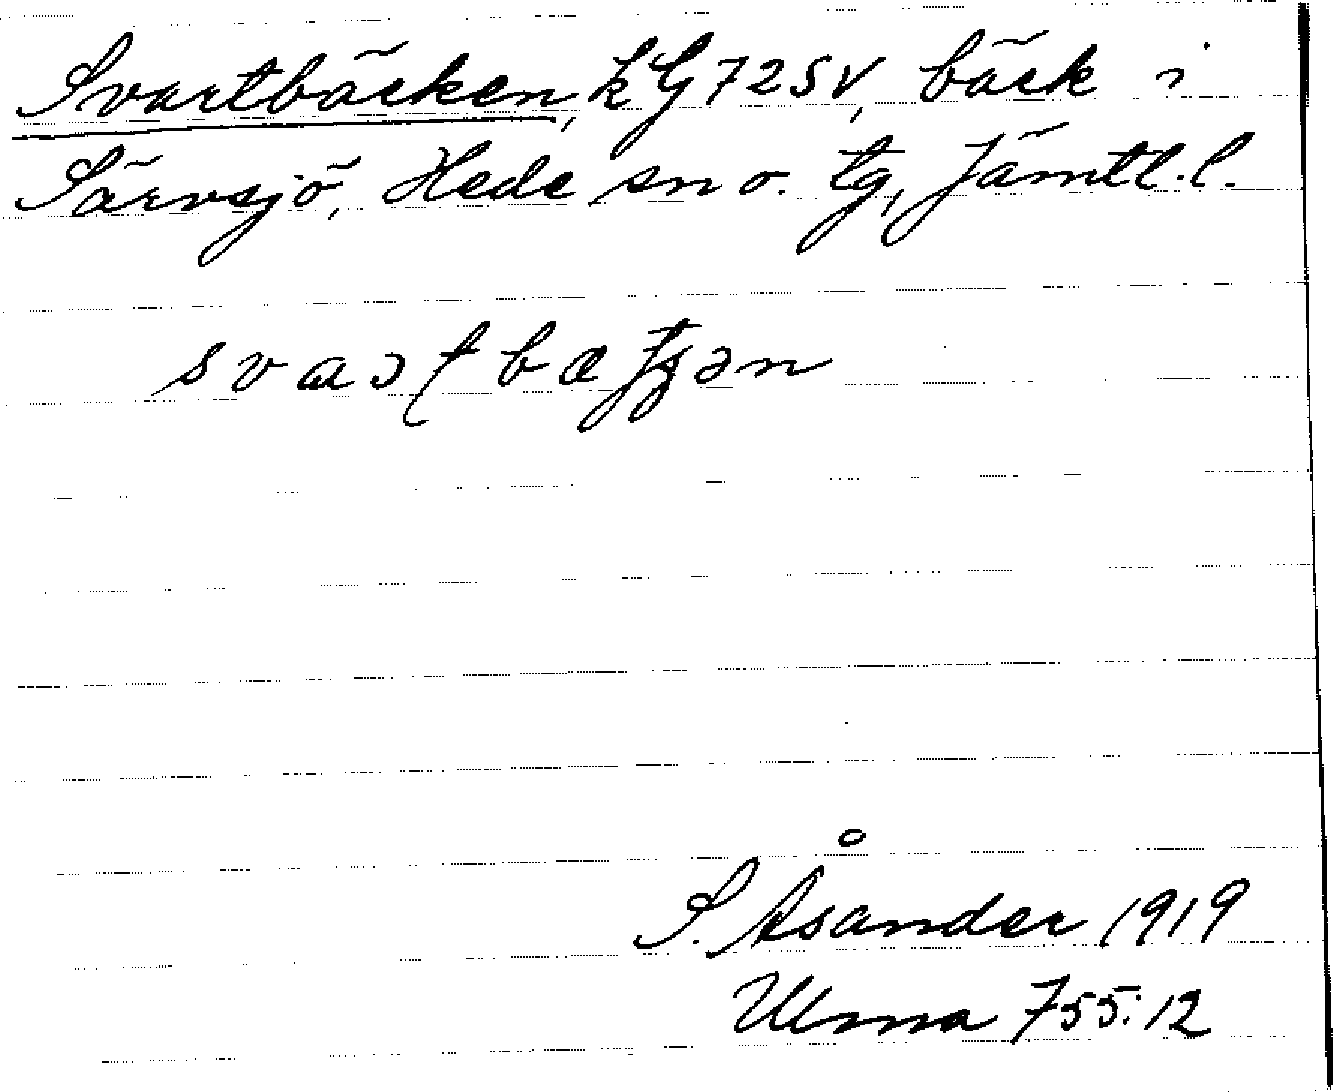 Svartbäcken, LG72SV, bäck i
Särvsjö, Hede sn o. tg, Jämtl.l.
S. Åsander 1919
Ulma 755:12